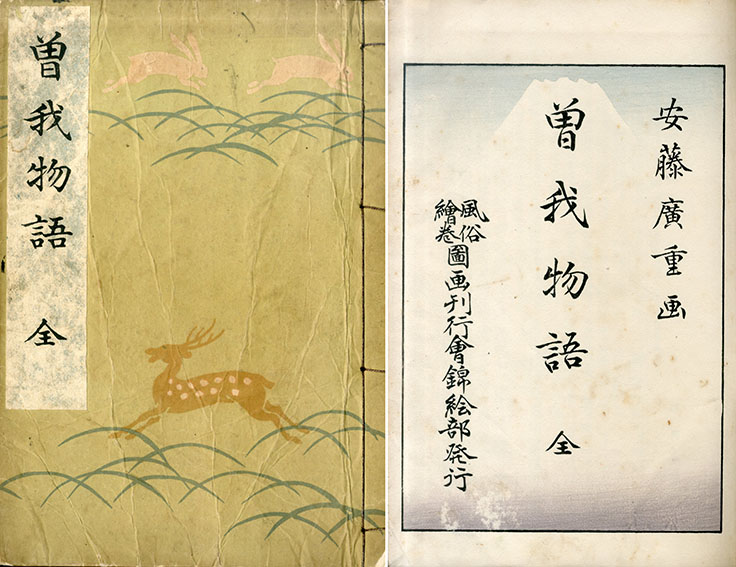 曽我物語 全
安藤廣重画
曽我物語 全
風俗
繪巻
圖画刊行會錦絵部発行